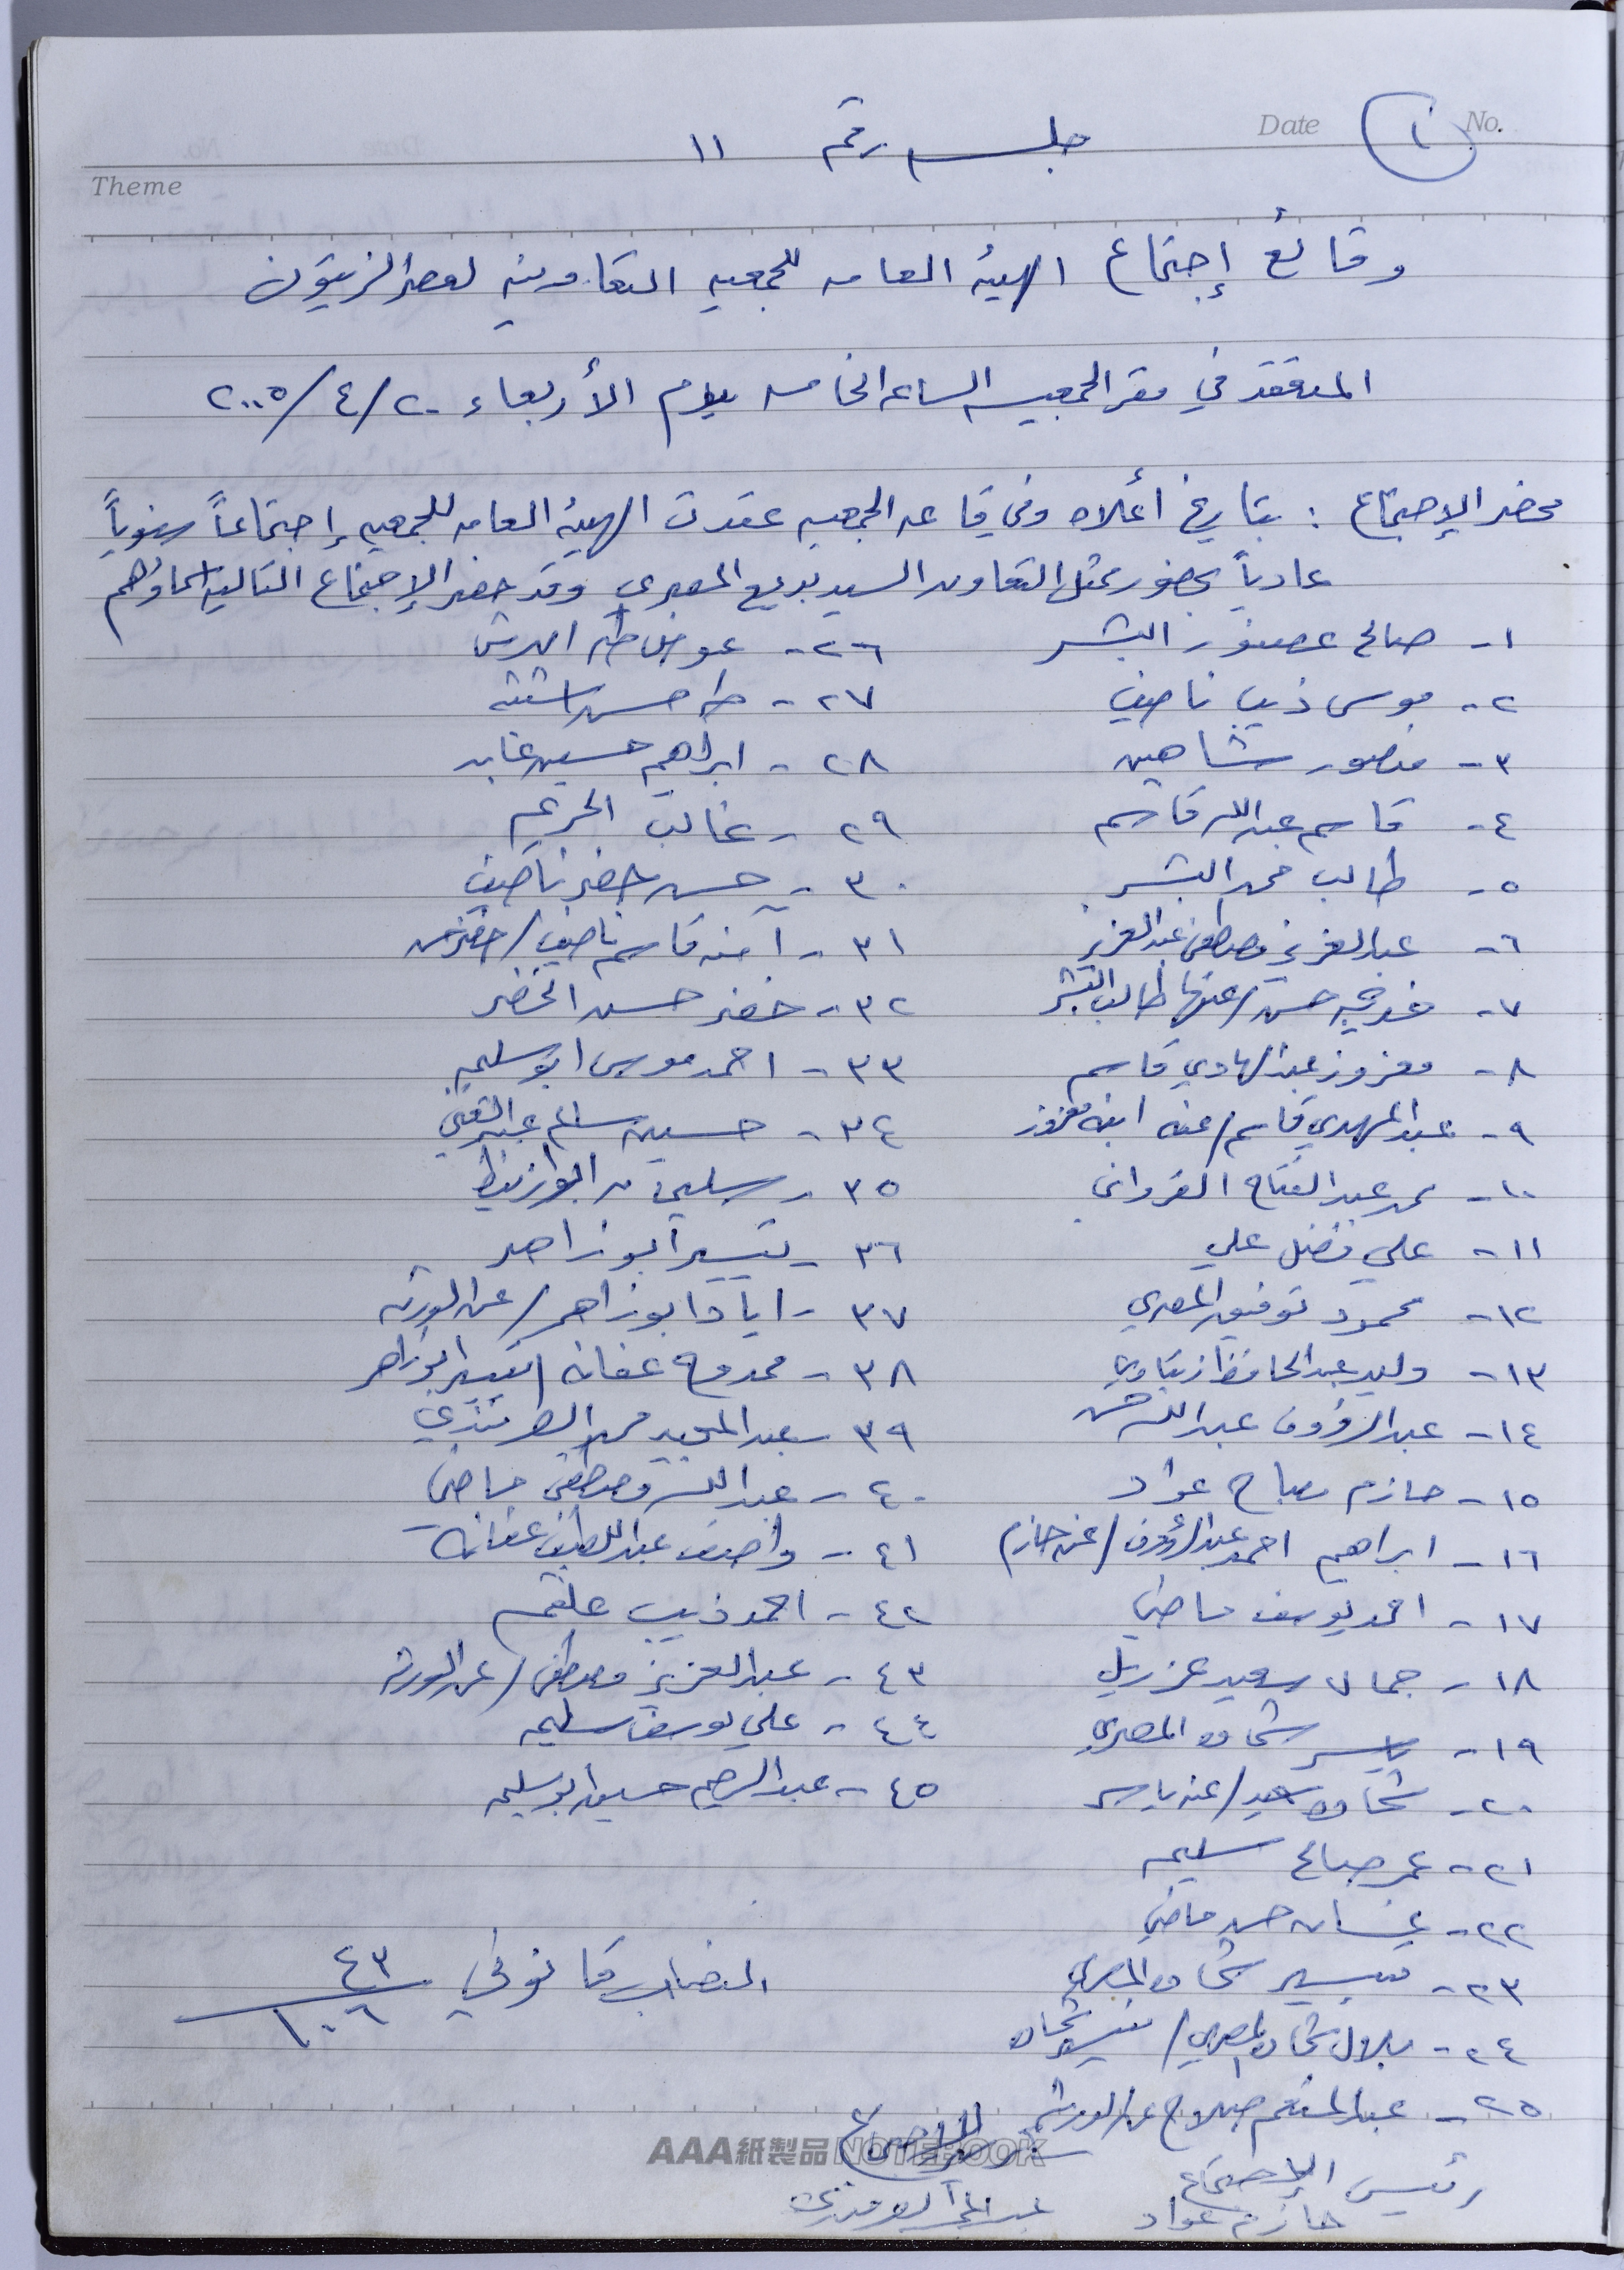 No. ١ Date
جلسه رقم ١١
Theme
وقائع إجتماع الهيئة العامه للجمعيه التعاونيه لعصر الزيتون
المنعقد في مقر الجمعيه الساعه الخامسه يوم الأربعاء ٢٠/٤/٢٠٠٥
محضر الإجتماع : بتاريخ أعلاه وفي قاعه الجمعيه عقدت الهيئة العامه للجمعيه إجتماعاً سنوياً
عادياً بحضور ممثل التعاون السيد بديع المصري وقد حضر الإجتماع التاليه اسماؤهم
١- صالح عصفور البشر
٢- موسى ذيب ناصيف
٣- منصور شاهين
٤- قاسم عبدالله قاسم
٥- طالب محمد البشر
٦- عبدالعزيز مصطفى عبدالعزيز
٧- خديجه حسن/عنها طالب البشر
٨- معزوز عبدالهادي قاسم
٩- عبدالمهدي قاسم/عنه ابنه معزوز
١٠- محمد عبدالفتاح القرواني
١١- علي فضل علي
١٢- محمود توفيق المصري
١٣- وليد عبدالحافظ زيتاوي
١٤- عبدالرؤوف عبدالله حسن
١٥- حازم مصباح عواد
١٦- ابراهيم احمد عبدالرؤوف/(عنه حازم)
١٧- احمد يوسف ماضي
١٨- جمال سعيد عزريل
١٩- ياسر شحاده المصري
٢٠- شحاده سعيد/عنه ياسر
٢١- عمر صالح سليمه
٢٢- غسان حسن ماضي
٢٣- تيسير شحاده المصري
٢٤- بلال شحاده المصري/ تيسير شحاده
٢٥- عبدالمنعم صلاح عن الورثه
٢٦- عوض طه
٢٧- طه حسن اشتيه
٢٨- ابراهيم حسين عابد
٢٩- غالب
٣٠- حسن خضر ناصيف
٣١- آمنه قاسم ناصيف/خضر حسن
٣٢- خضر حسن الخضر
٣٣- احمد موسى ابو سليمه
٣٤- حسين سالم عبدالغني
٣٥- سليمان ابو زنيط
٣٦- تيسير ابو زاهر
٣٧- اياد ابو زاهر/عن الورثه
٣٨- ممدوح عفانه/تيسير ابو زاهر
٣٩- عبدالمجيد محمد
٤٠- عبدالله مصطفى ماضي
٤١- واصف عبداللطيف عفانه
٤٢- احمد ذيب علقم
٤٣- عبدالعزيز مصطفى/عن الورثه
٤٤- علي يوسف سليمه
٤٥- عبدالرحيم حسين ابو سليمه
النصاب قانوني ٤٣/١٠٦
رئيس الإجتماع
حازم عواد
AAA紙製品 NOTEBOOK